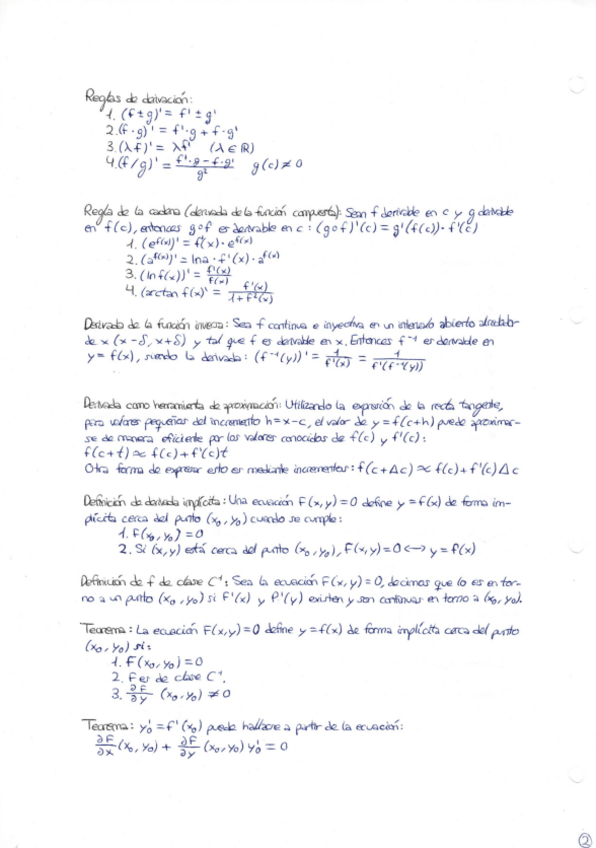 Reglas de derivación:
1. (f ± g)' = f' ± g'
2. (f · g)' = f' · g + f · g'
3. (λf)' = λf' (λ ∈ ℝ)
4. (f/g)' = (f' · g - f · g')/g² g(c) ≠ 0
Regla de la cadena (derivada de la función compuesta): Sean f derivable en c y g derivable
en f(c), entonces g∘f es derivable en c: (g∘f)'(c) = g'(f(c)) · f'(c)
1. (e^f(x))' = f'(x) · e^f(x)
2. (a^f(x))' = lna · f'(x) · a^f(x)
3. (ln f(x))' = f'(x)/f(x)
4. (arctan f(x)' = f'(x)/(1 + f²(x))
Derivada de la función inversa: Sea f continua e inyectiva en un intervalo abierto alrededor
de x (x - δ, x + δ) y tal que f es derivable en x. Entonces f⁻¹ es derivable en
y = f(x), siendo la derivada: (f⁻¹(y))' = 1/f'(x) = 1/f'(f⁻¹(y))
Derivada como herramienta de aproximación: Utilizando la expresión de la recta tangente,
para valores pequeños del incremento h = x - c, el valor de y = f(c + h) puede aproximar-
se de manera eficiente por los valores conocidos de f(c) y f'(c):
f(c + t) ≈ f(c) + f'(c)t
Otra forma de expresar esto es mediante incrementos: f(c + Δc) ≈ f(c) + f'(c) Δc
Definición de derivada implícita: Una ecuación F(x, y) = 0 define y = f(x) de forma im-
plícita cerca del punto (x₀, y₀) cuando se cumple:
1. F(x₀, y₀) = 0
2. Si (x, y) está cerca del punto (x₀, y₀), F(x, y) = 0 <-> y = f(x)
Definición de f de clase C¹: Sea la ecuación F(x, y) = 0, decimos que lo es en tor-
no a un punto (x₀, y₀) si F'(x) y F'(y) existen y son continuas en torno a (x₀, y₀).
Teorema: La ecuación F(x, y) = 0 define y = f(x) de forma implícita cerca del punto
(x₀, y₀) si:
1. F(x₀, y₀) = 0
2. F es de clase C¹.
3. ∂F/∂y (x₀, y₀) ≠ 0
Teorema: y₀' = f'(x₀) puede hallarse a partir de la ecuación:
∂F/∂x (x₀, y₀) + ∂F/∂y (x₀, y₀) y₀' = 0
2